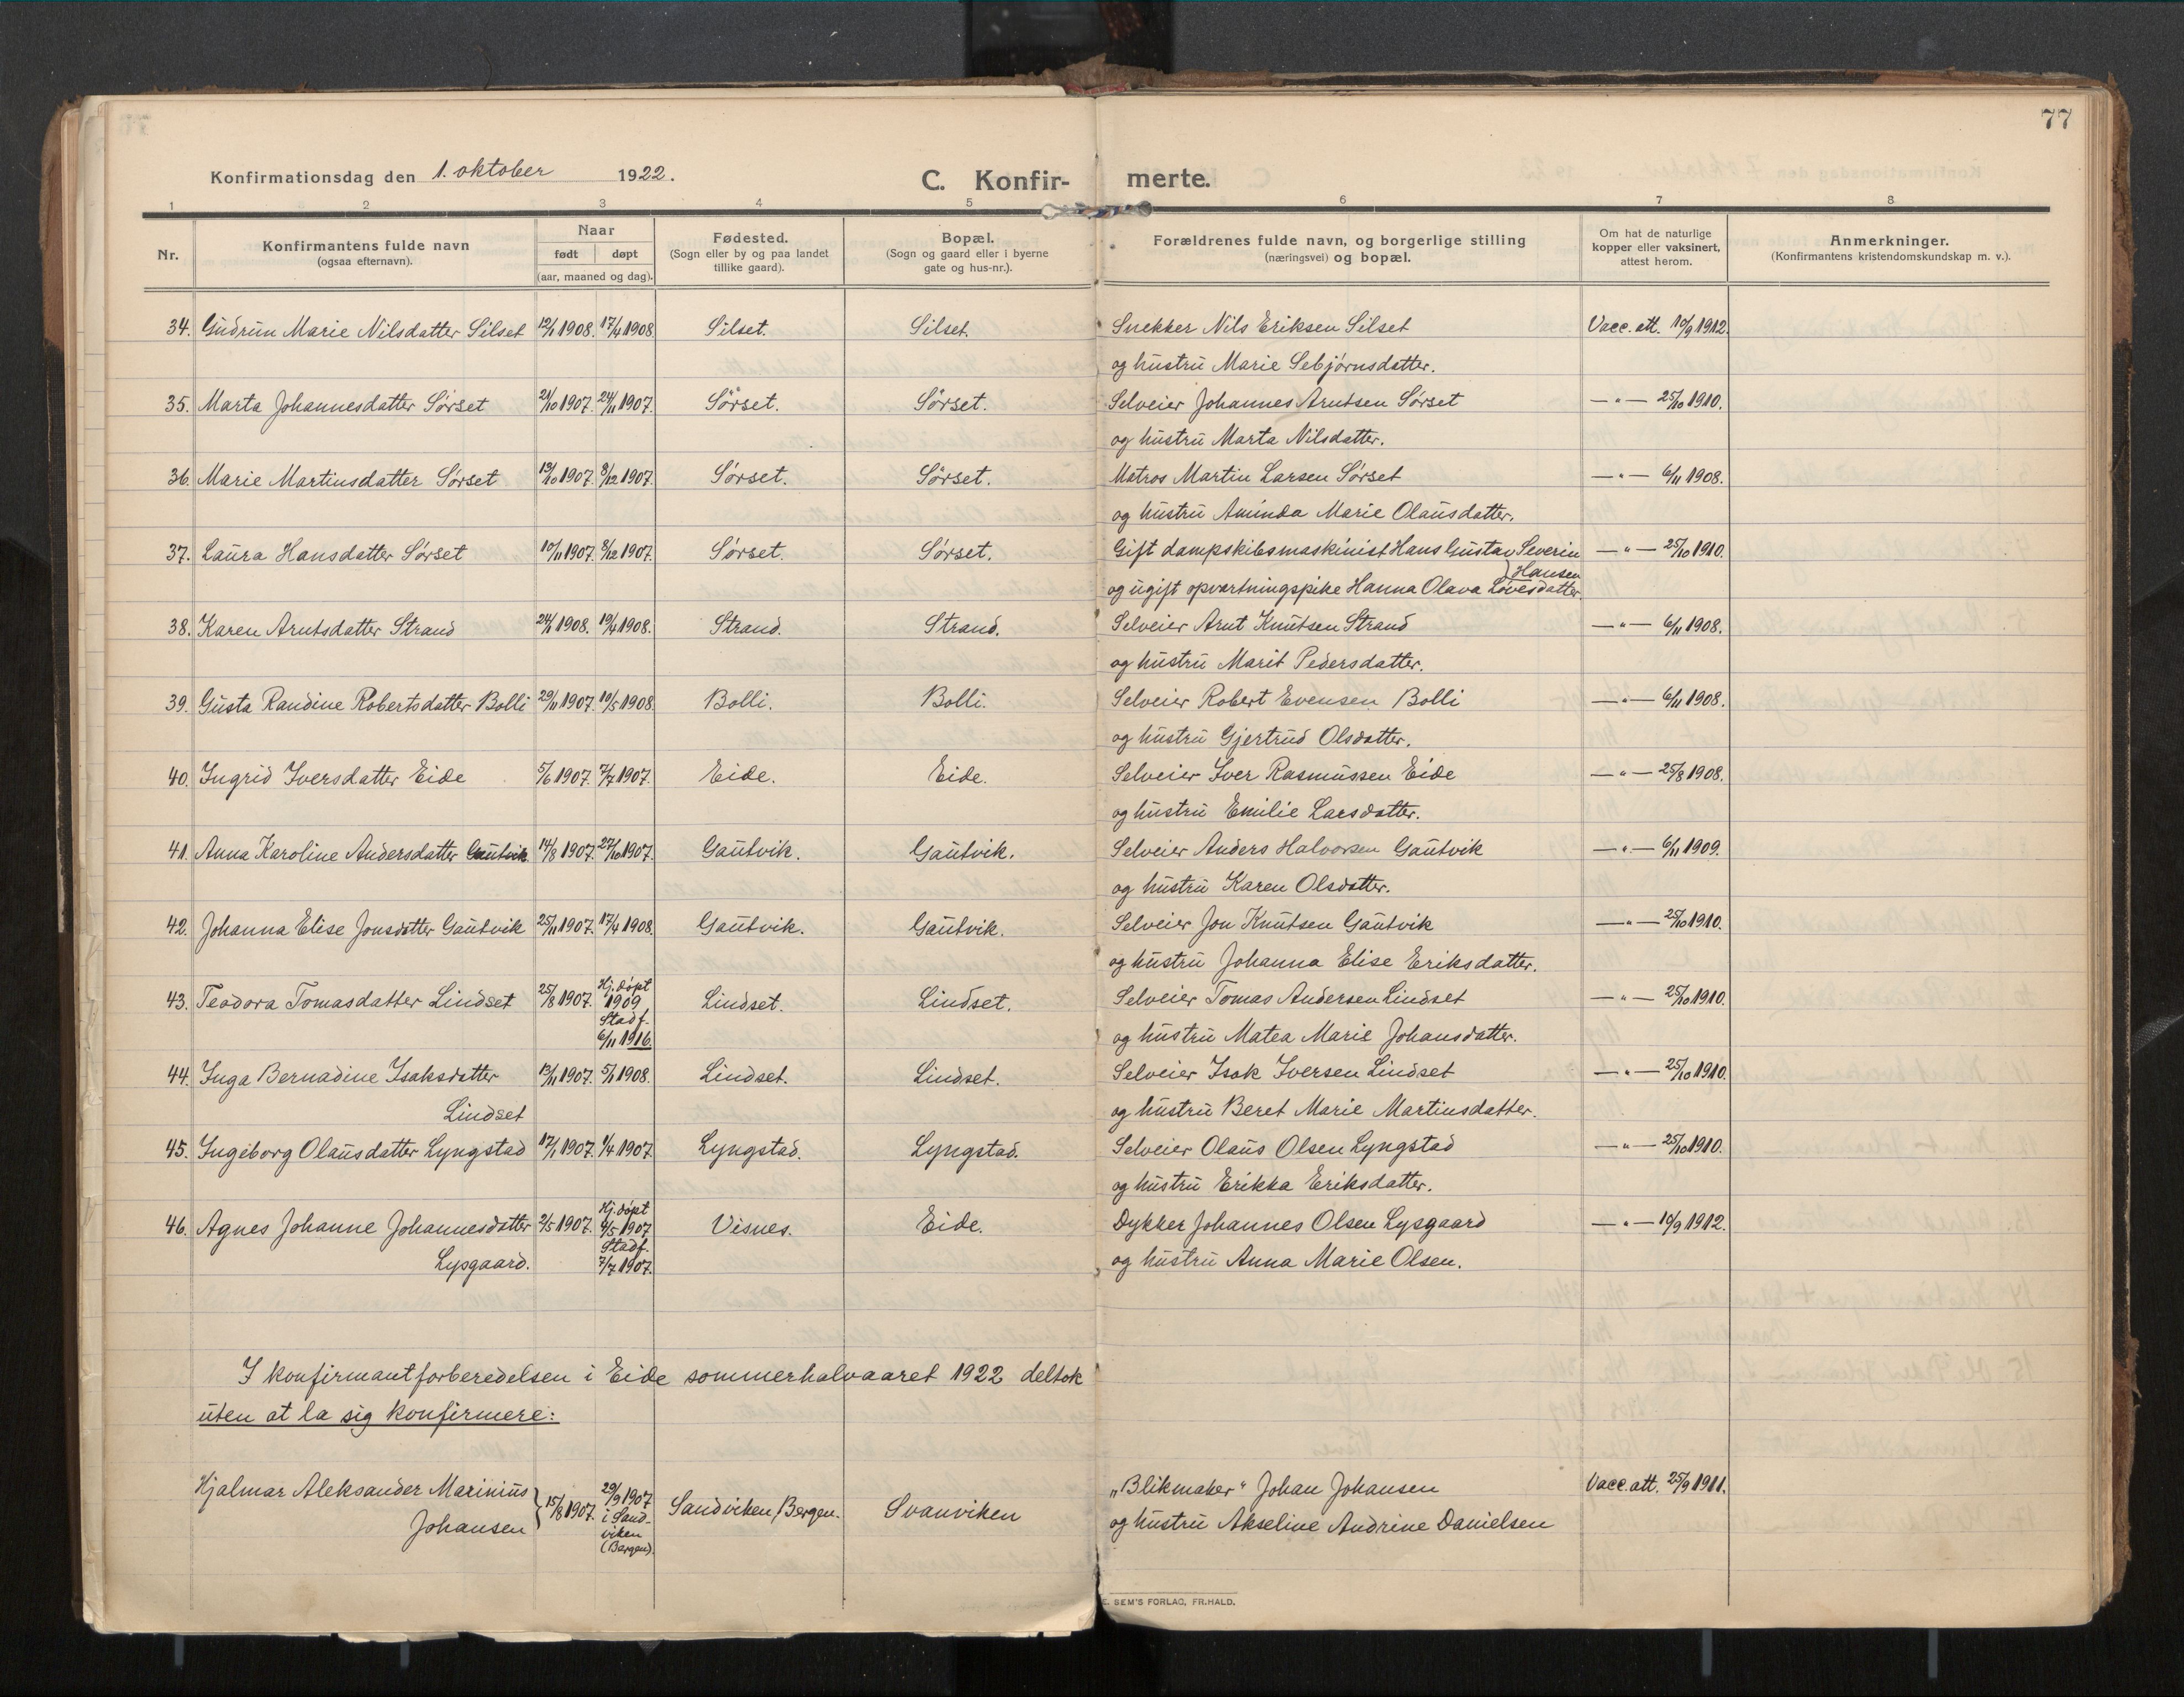 77
Konfirmationsdag den 1. oktober 1922.
C. Konfir- merte.
1 2 3 4 5 6 7 8
Nr.
Konfirmantens fulde navn
(ogsaa efternavn).
Naar
født døpt
(aar, maaned og dag).
Fødested.
(Sogn eller by og paa landet
tillike gaard).
Bopæl.
(Sogn og gaard eller i byerne
gate og hus-nr.).
Forældrenes fulde navn, og borgerlige stilling
(næringsvei) og bopæl.
Om hat de naturlige
kopper eller vaksinert,
attest herom.
Anmerkninger.
(Konfirmantens kristendomskundskap m. v.).
34. Gudrun Marie Nilsdatter Silset 12/1 1908. 17/4 1908. Silset. Silset. Snekker Nils Eriksen Silset Vacc. att. 10/9 1912.
og hustru Marie Sebjørnsdatter.
35. Marta Johannesdatter Sørset 21/10 1907. 24/11 1907. Sørset. Sørset. Selveier Johannes Arntsen Sørset —"— 25/10 1910.
og hustru Marta Nilsdatter.
36. Marie Martinsdatter Sørset 13/10 1907. 8/12 1907. Sørset. Sørset. Matros Martin Larsen Sørset —"— 6/11 1908.
og hustru Aminda Marie Olausdatter.
37. Laura Hansdatter Sørset 10/11 1907. 8/12 1907. Sørset. Sørset. Gift dampskibsmaskinist Hans Gustav Severin —"— 25/10 1910.
Hansen
og ugift opvartningspike Hanna Olava Lovesdatter.
38. Karen Arntsdatter Strand 24/1 1908. 19/4 1908. Strand. Strand. Selveier Arnt Knutsen Strand —"— 6/11 1908.
og hustru Marit Pedersdatter.
39. Gusta Randine Robertsdatter Bolli 29/11 1907. 10/5 1908. Bolli. Bolli. Selveier Robert Evensen Bolli —"— 6/11 1908.
og hustru Gjertrud Olsdatter.
40. Ingrid Iversdatter Eide 5/6 1907. 7/7 1907. Eide. Eide. Selveier Iver Rasmussen Eide —"— 25/8 1908.
og hustru Emilie Larsdatter.
41. Anna Karoline Andersdatter Gautvik 14/8 1907. 27/10 1907. Gautvik. Gautvik. Selveier Anders Halvorsen Gautvik —"— 6/11 1909.
og hustru Karen Olsdatter.
42. Johanna Elise Jonsdatter Gautvik 25/11 1907. 17/4 1908. Gautvik. Gautvik. Selveier Jon Knutsen Gautvik —"— 25/10 1910.
og hustru Johanna Elise Eriksdatter.
Hj. døpt
43. Teodora Tomasdatter Lindset 25/8 1907. 1909 Lindset. Lindset. Selveier Tomas Andersen Lindset —"— 25/10 1910.
Stadf.
6/11 1916. og hustru Matea Marie Johansdatter.
44. Inga Bernadine Isaksdatter 13/11 1907. 5/1 1908. Lindset. Lindset. Selveier Isak Iversen Lindset —"— 25/10 1910.
Lindset og hustru Beret Marie Martinsdatter.
45. Ingeborg Olausdatter Lyngstad 17/1 1907. 1/4 1907. Lyngstad. Lyngstad. Selveier Olaus Olsen Lyngstad —"— 25/10 1910.
og hustru Erikka Eriksdatter.
Hj. døpt
46. Agnes Johanne Johannesdatter 2/5 1907. 4/5 1907 Visnes. Eide. Dykker Johannes Olsen Lysgaard —"— 10/9 1912.
Stadf.
Lysgaard. 7/7 1907. og hustru Anna Marie Olsen.
I konfirmantforberedelsen i Eide sommerhalvaaret 1922 deltok
uten at la sig konfirmere:
Hjalmar Aleksander Marinius 29/9 1907 „Blikmaker“ Johan Johansen Vacc. att. 25/9 1911.
15/8 1907. i Sand- Sandviken/Bergen. Svanviken
Johansen viken og hustru Akseline Andrine Danielsen
(Bergen).
E. SEM'S FORLAG, FR.HALD.